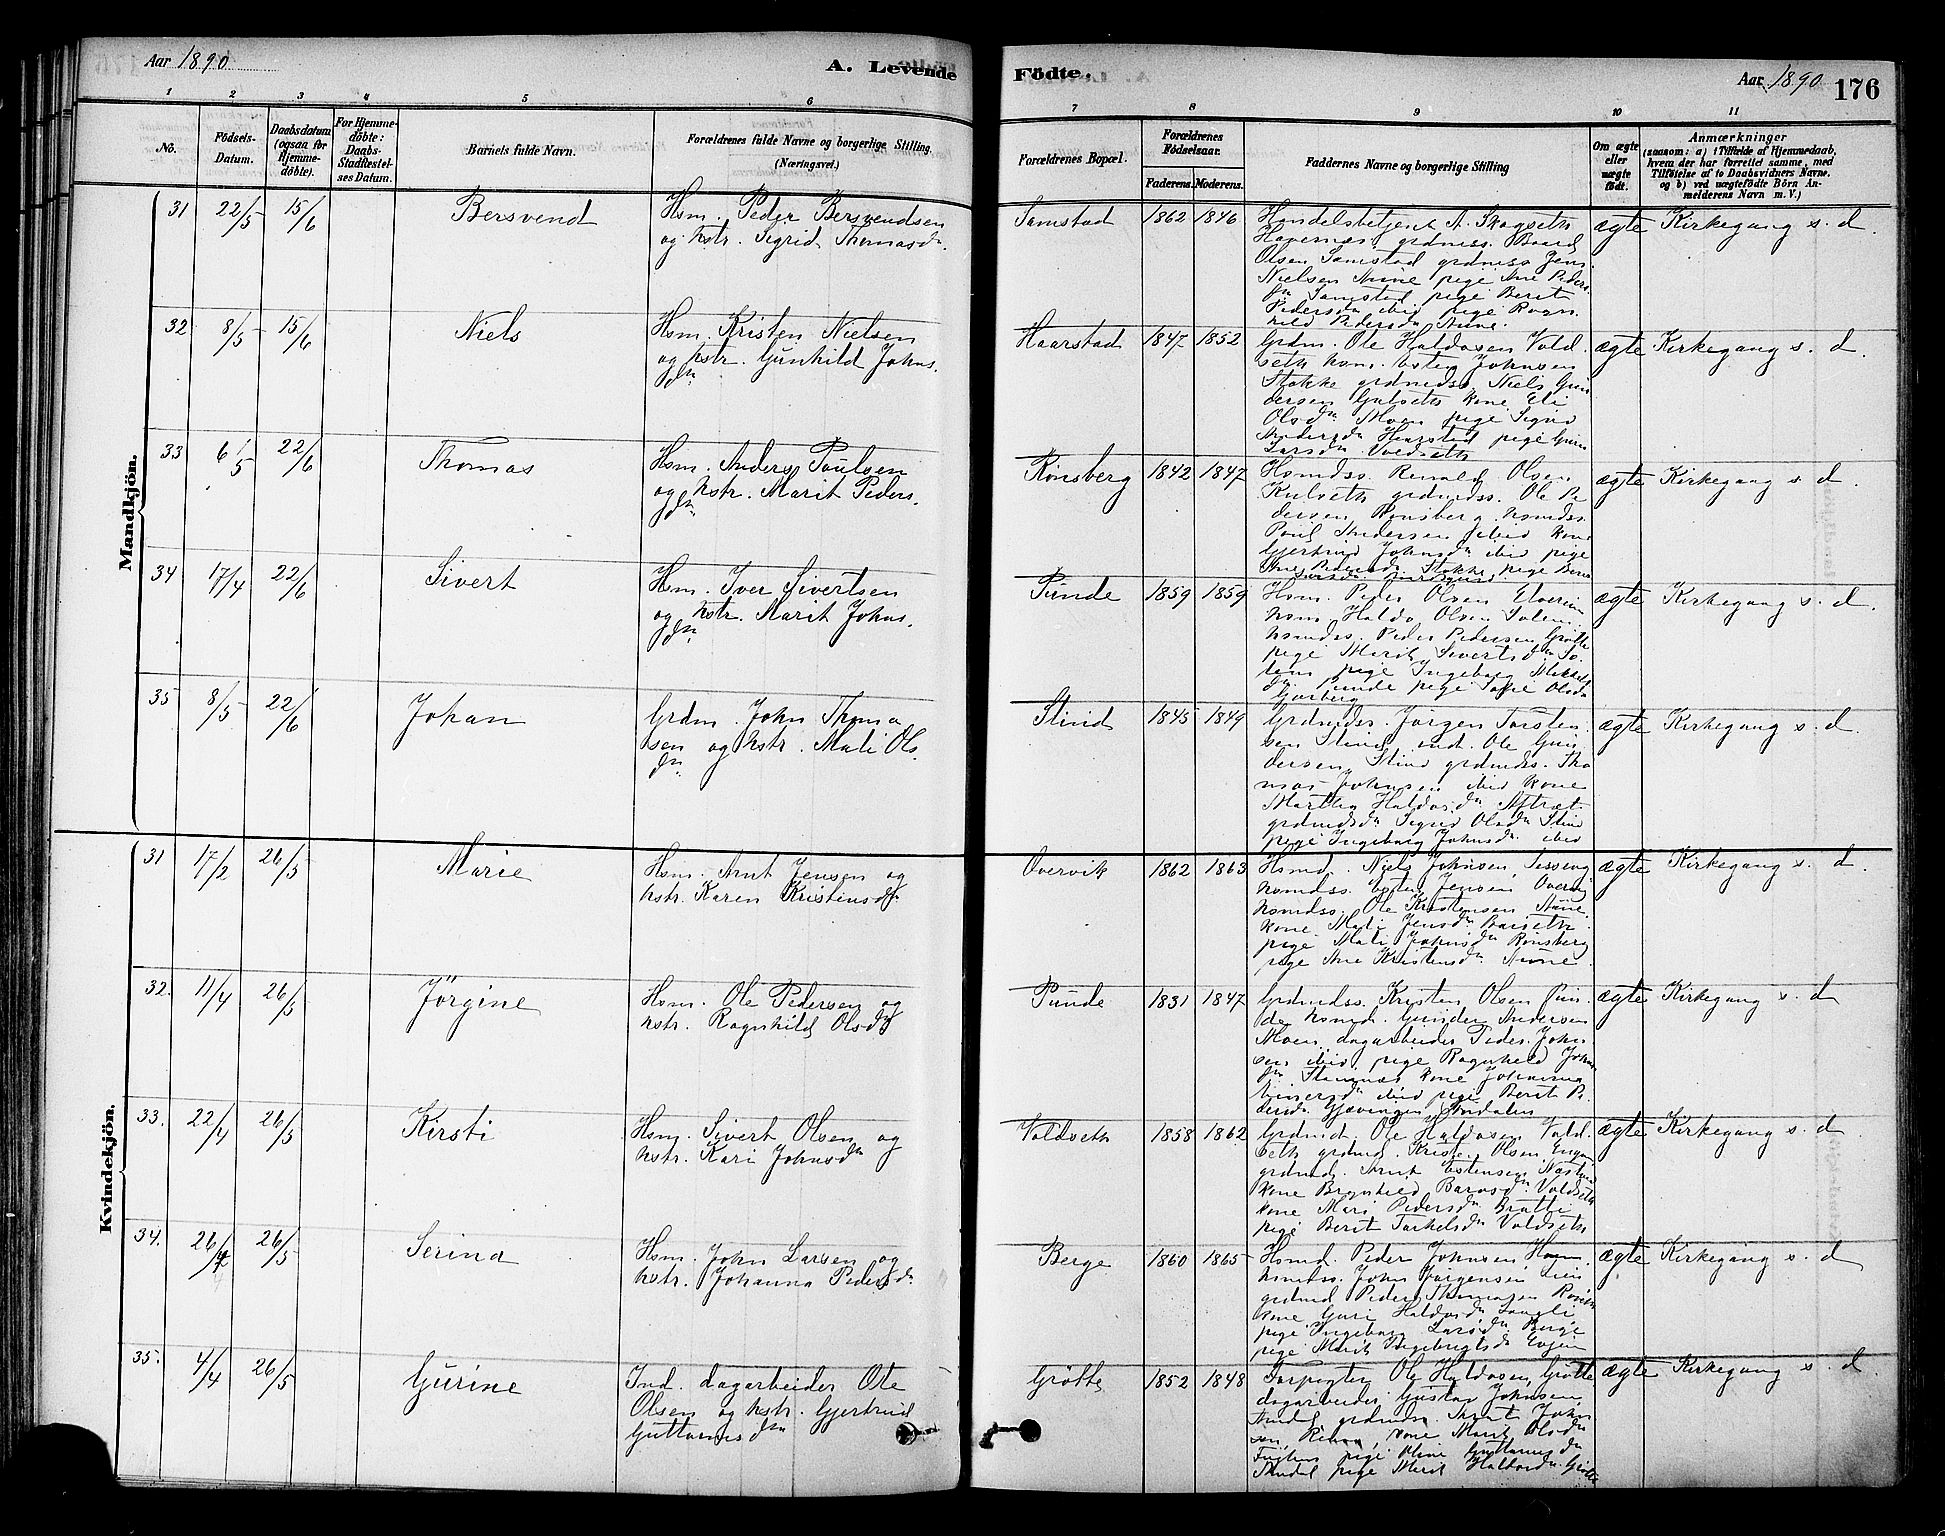 Aar 1890
A. Levende
Fødte.
Aar 1890
176
1 2 3 4 5 6 7 8 9 10 11
No.
Födsels-Datum.
Daabsdatum (ogsaa for Hjemmedöbte).
For Hjemmedöbte: Daabs-Stadfestelses Datum.
Barnets fulde Navn.
Forældrenes fulde Navne og borgerlige Stilling.
(Næringsvei.)
Forældrenes Bopæl.
Forældrenes Födselsaar.
Faderens. Moderens.
Faddernes Navne og borgerlige Stilling
Om ægte eller uægte födt.
Anmærkninger
(saasom: a) i Tilfælde af Hjemmedaab,
hvem der har forrettet samme, med
Tilföielse af to Daabsvidners Navne.
og b) ved uægtefödte Börn Anmelderens Navn m. V.)
Mandkjön.
31 22/5 15/6 Bersvend
Hsm. Peder Bersvendsen
og hstr. Sigrid Thomasdr.
Samstad 1862 1846
Handelsbetjent A. Skogseth
Havernæs grdmss. Baard
Olsen Samstad grdmss Jens
Nielsen Aune pige Ane Peders
dr Samstad pige Berit
Pedersdr ibid pige Ragn
hild Pedersdr Aune.
ægte Kirkegang s. d.
32 8/5 15/6 Niels
Hsm. Kristen Nielsen
og hstr. Gunhild Johns
dr
Haarstad 1847 1852
Grdm. Ole Haldosen Vold
seth hsm. Esten Johnsen
Stokke grdmdss. Niels Gun
dersen Gulseth kone Eli
Olsdr Moen pige Sigrid
Andersdr Haarstad pige Guru
Larsdr Voldseth
ægte Kirkegang s. d.
33 6/5 22/6 Thomas
Hsm. Anders Paulsen
og hstr. Marit Peders.
dr
Rönsberg 1842 1847
Hsmdss. Renald Olsen
Kulseth grdmdss. Ole Pe
dersen Rönsberg hsmdss.
Paul Andersen ibid kone
Gjertrud Johnsdr ibid pige
Ane Pedersdr Stokke pige
ægte Kirkegang s d.
34 17/4 22/6 Sivert
Hsm. Iver Sivertsen
og hstr. Marit Johns.
dr
Punde 1859 1859
Hsm. Peder Olsen
hsm Haldo Olsen
hsmdss. Peder Pedersen Grötte
pige Marit Sivertsdr
pige Ingeborg Mikkels
dr Punde pige Olsdr
ægte Kirkegang s. d.
35 8/5 22/6 Johan
Grdm. John Thoma
sen og hstr. Mali Ols.
dr
Slind 1845 1849
Grdmdss. Jörgen Torsten
sen Slind ind. Ole Gun
dersen Slind grdmdss. Tho
mas Johnsen ibid kone
Martha Haldosdr Aftræt
grdmdsdr Sigrid Olsdr Slind
pige Ingeborg Johnsdr ibid
ægte Kirkegang s. d.
Kvindekjön.
31 17/2 26/5 Marie
Hsm. Arnt Jensen og
hstr. Karen Kristensdr
Overvik 1862 1863
Hsmd. Niels Johnsen
hsmdss. Esten Jensen Overvig
hsmdss. Ole Kristensen Aune
kone Mali Jensdr
pige Mali Johnsdr Rönsberg
pige Ane Kristensdr Aune.
ægte Kirkegang s. d.
32. 11/4 26/5 Jörgine
Hsm. Ole Pedersen og
hstr. Ragnhild Olsdr
Punde 1831 1847
Grdmdss. Kristen Olsen Pun
de hsmd. Gunder Andersen
Moen dagarbeider Peder John
sen ibid. pige Ragnhild Johns
dr Stamnæs kone Johanna
Einersdr ibid pige Berit Pe
dersdr
ægte Kirkegang s. d
33. 22/4 26/5 Kirsti
Hsm. Sivert Olsen og
hstr. Kari Johnsdr
Voldseth 1858 1862
Grdmd. Ole Haldosen Vold.
seth grdmd. Kristen Olsen Engan
grdmd. Arnt Estensen
kone Bronhild Baarsdr Voldseth
kone Mari Pedersdr Bratli
pige Berit Torkelsdr Voldseth
ægte Kirkegang s. d
34. 26/4 26/5 Serina
Hsm. John Larsen og
hstr. Johanna Pedersdr
Berge 1860 1865
Hsmd. Peder Johnsen
hsmdss. John Jörgensen Lien
grdmd Peder Thomasen
kone Guri Haldosdr
pige Ingeborg Larsdr Berge
pige Marit Ingebrigtsdr Evjen
ægte Kirkegang s. d
35. 4/4 26/5 Gurine
Ind. dagarbeider Ole
Olsen og hstr. Gjertrud
Guttormsdr
Grötte 1852 1848
Forpagter Ole Haldosen Grötte
dagarbeider Gustav Johnsen
Selbu grdmdss. Arnt John
sen kone Marit Olsdr
pige Oline Guttormsdr
pige Marit Haldosdr Grötte
ægte Kirkegang s. d